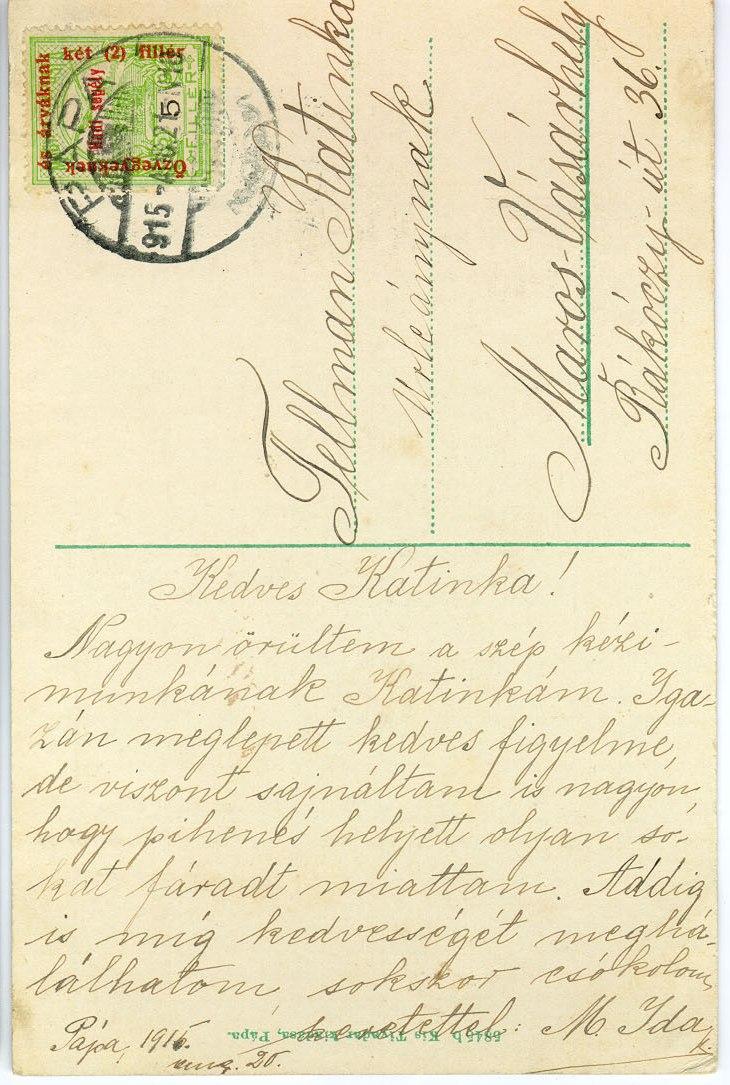 és árváknak
két (2) fillér
Hadi segély
Özvegyeknek
FILLÉR
PÁPA
915
Fellman Katinka
urleánynak
Maros-Vásárhely
Rákóczy-út 36.
Kedves Katinka!
Nagyon örültem a szép kézi-
munkának Katinkám. Iga-
zán meglepett kedves figyelme,
de viszont sajnáltam is nagyon,
hogy pihenés helyett olyan so-
kat fáradt miattam. Addig
is míg kedvességét meghá-
lálhatom sokszor csókolom,
szeretettel: M. Ida
Pápa, 1915.
aug. 20.
5845 b. Kis Tivadar kiadása, Pápa.